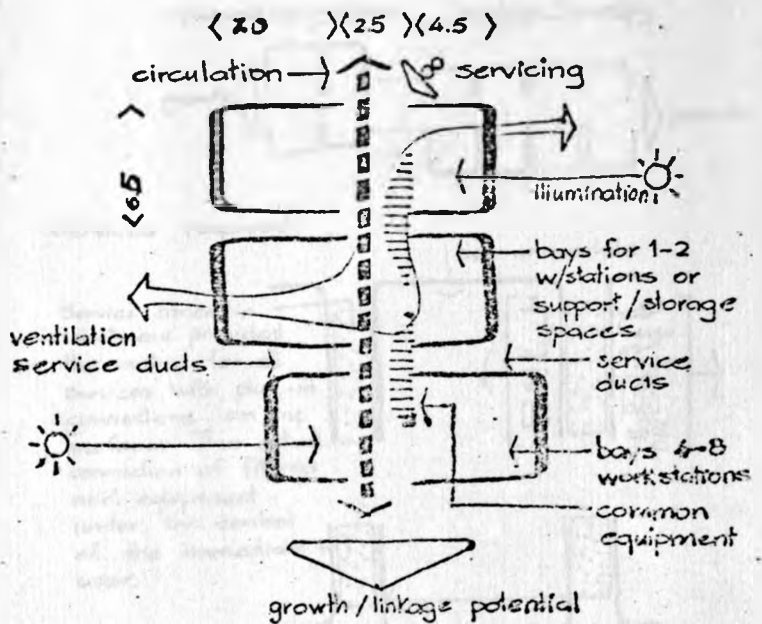 ⟨2.5⟩⟨4.5⟩
circulation
servicing
⟨6.5⟩
illumination
bays for 1-2
w/stations or
support/storage
spaces
ventilation
service ducts
service
ducts
bays 4-8
workstations
common
equipment
growth/linkage potential